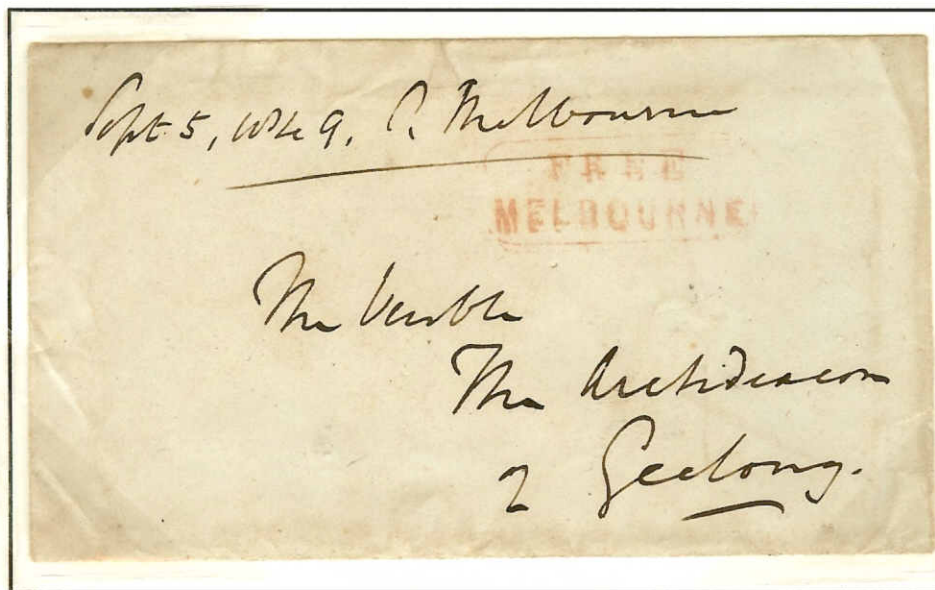 Sept 5, 1849. C. Melbourne
FREE
MELBOURNE
The Venble
The Archdeacon
Geelong.